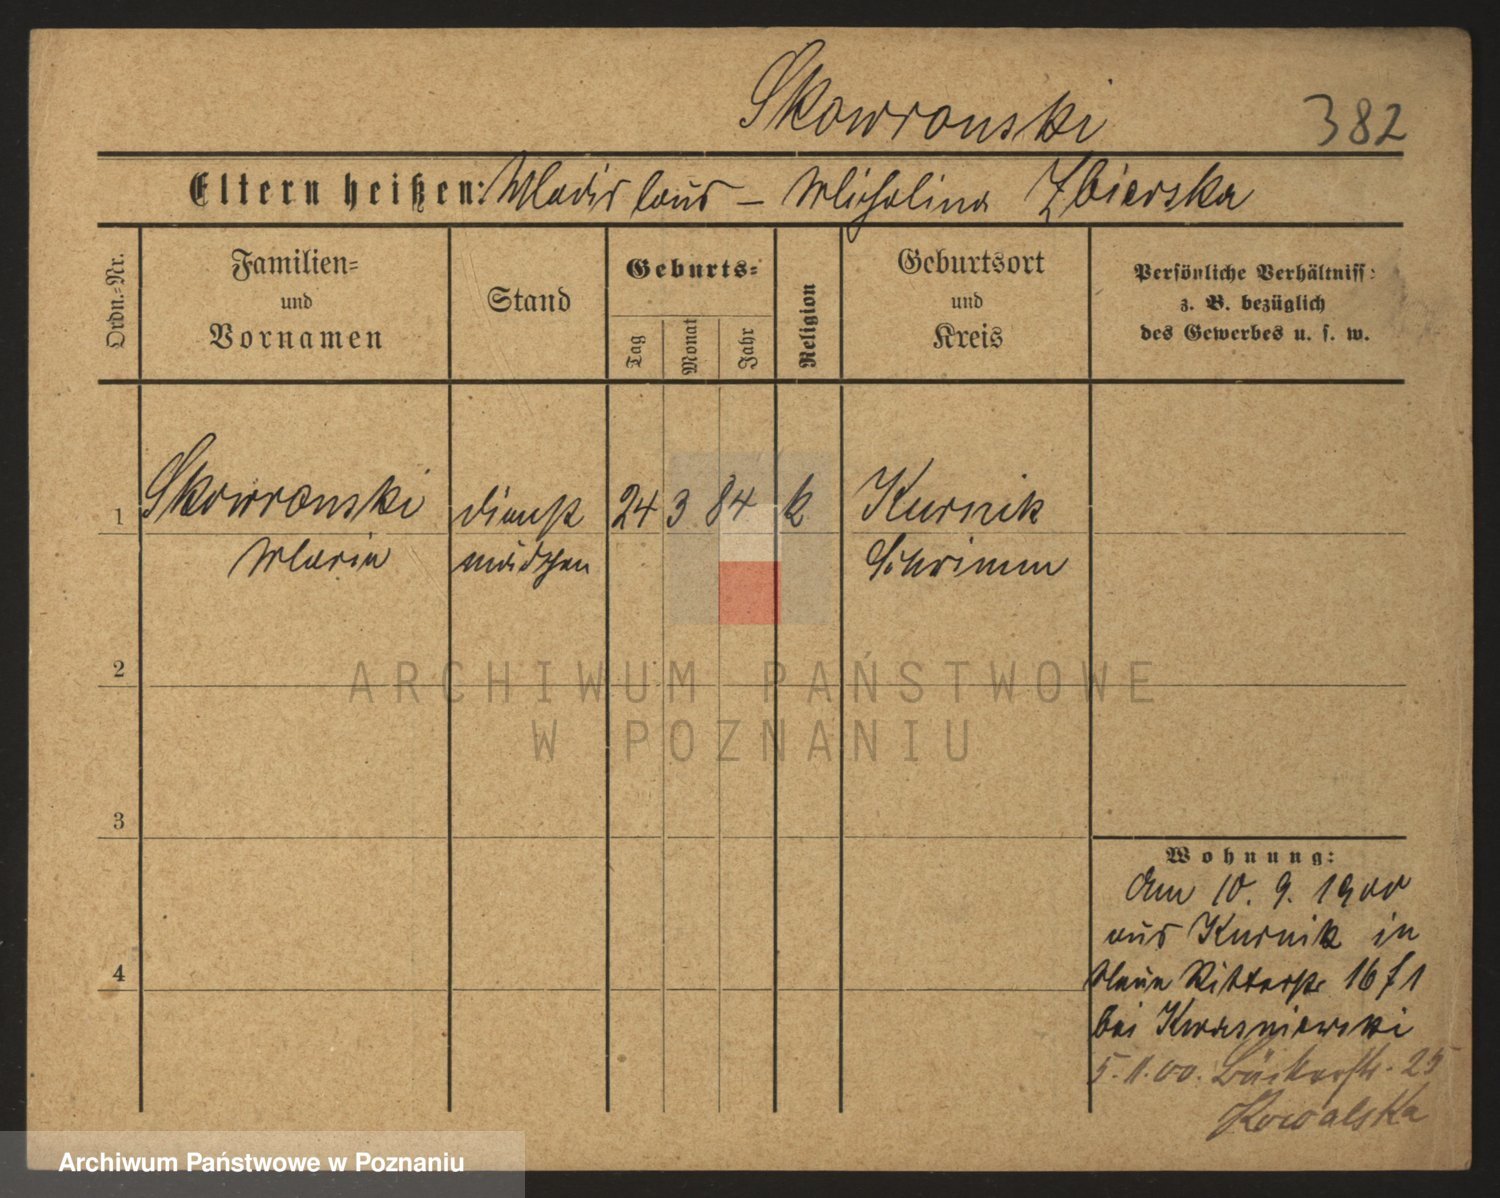 Skowronski 382
Eltern heißen: Wladislaus – Michalina Zbierska
Ordn.-Nr.
Familien-
und
Vornamen
Stand
Geburts-
Tag
Monat
Jahr
Religion
Geburtsort
und
Kreis
Persönliche Verhältniss:
z. B. bezüglich
des Gewerbes u. s. w.
1 Skowronski dienst 24 3 84 k Kurnik
Maria mädchen Schrimm
2
ARCHIWUM PAŃSTWOWE
W POZNANIU
3
Wohnung:
Am 10. 9. 1900
aus Kurnik in
Neue Ritterstr 16 f 1
bei Kwasniewski
5.11.00. Bäckerstr. 25
Kowalska
4
Archiwum Państwowe w Poznaniu